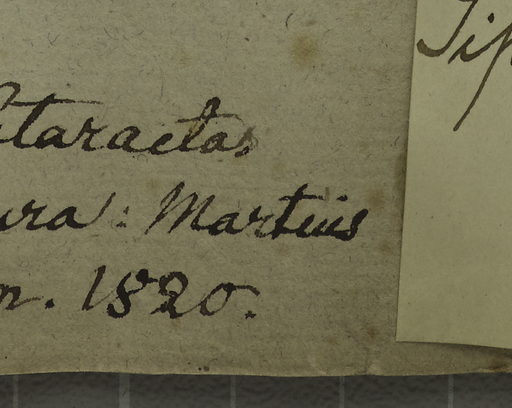 Cataractas
Japura: Martius
1820.
Tip